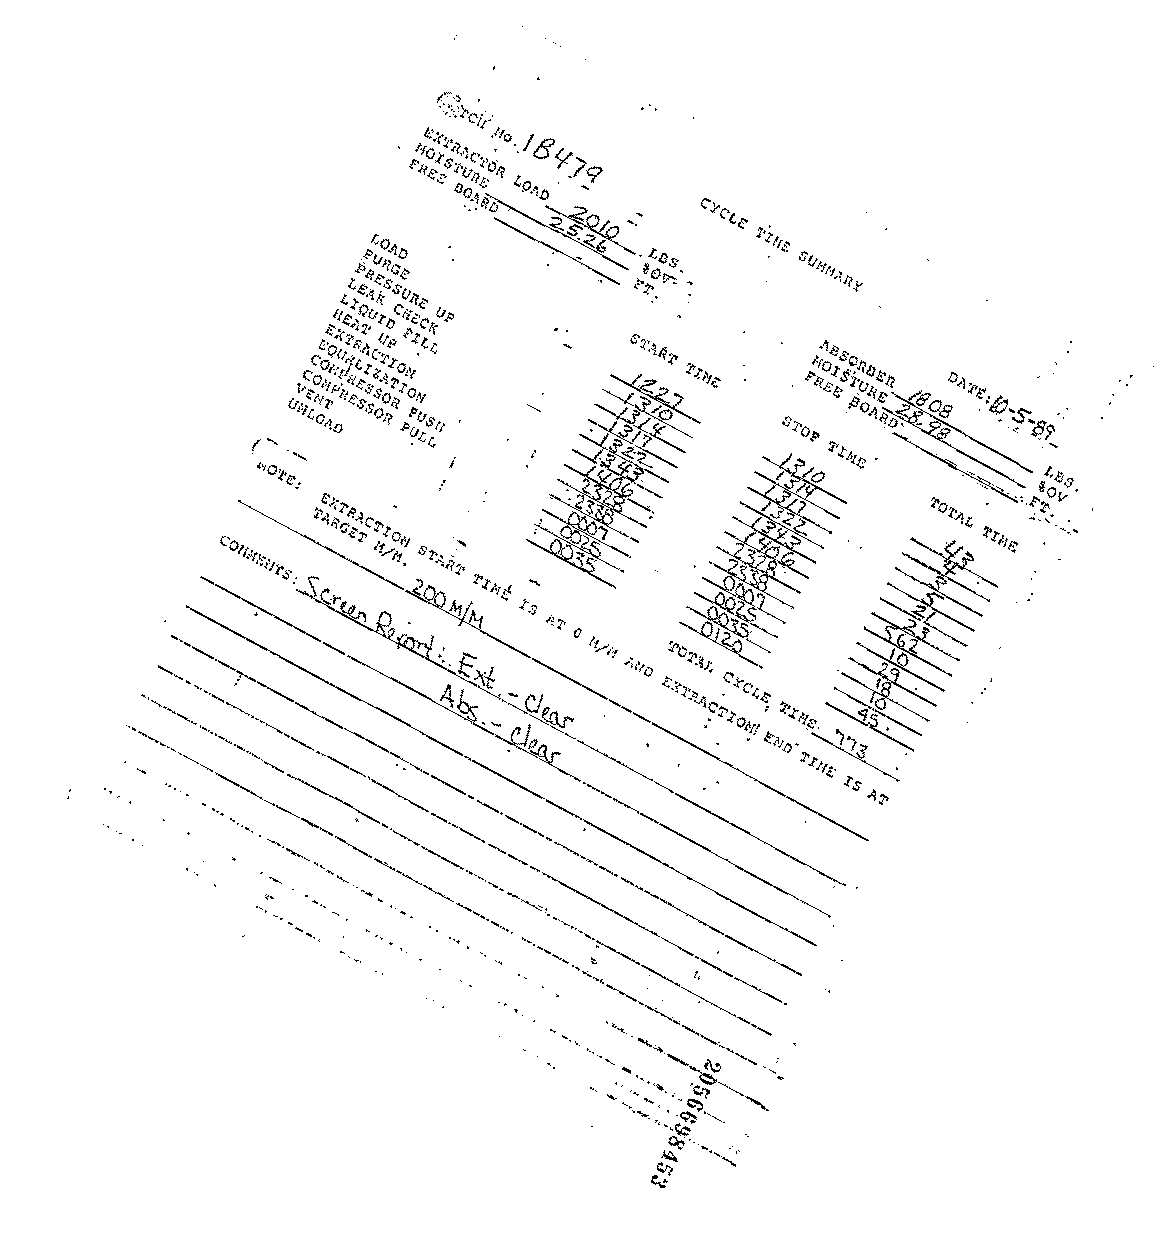 CYCLE TIME SUMMARY
BATCH NO. 1B479
DATE: 10-5-89
EXTRACTOR LOAD 2010 LBS.
MOISTURE 25.26 %OV
FREE BOARD FT.
ABSORBER 1808 LBS.
MOISTURE 28.98 %OV
FREE BOARD FT.
START TIME STOP TIME TOTAL TIME
LOAD 1227 1310 43
PURGE 1310 1314 4
PRESSURE UP 1314 1317 3
LEAK CHECK 1317 1322 5
LIQUID FILL 1322 1343 21
HEAT UP 1343 1406 23
EXTRACTION 1406 2328 562
EQUALIZATION 2328 2338 10
COMPRESSOR PUSH 2338 0007 29
COMPRESSOR PULL 0007 0025 18
VENT 0025 0035 10
UNLOAD 0035 0120 45
TOTAL CYCLE TIME 773
NOTE: EXTRACTION START TIME IS AT 0 M/M AND EXTRACTION END TIME IS AT
TARGET M/M. 200 M/M
COMMENTS: Screen Report: Ext. - Clear
Abs. - Clear
2056698453